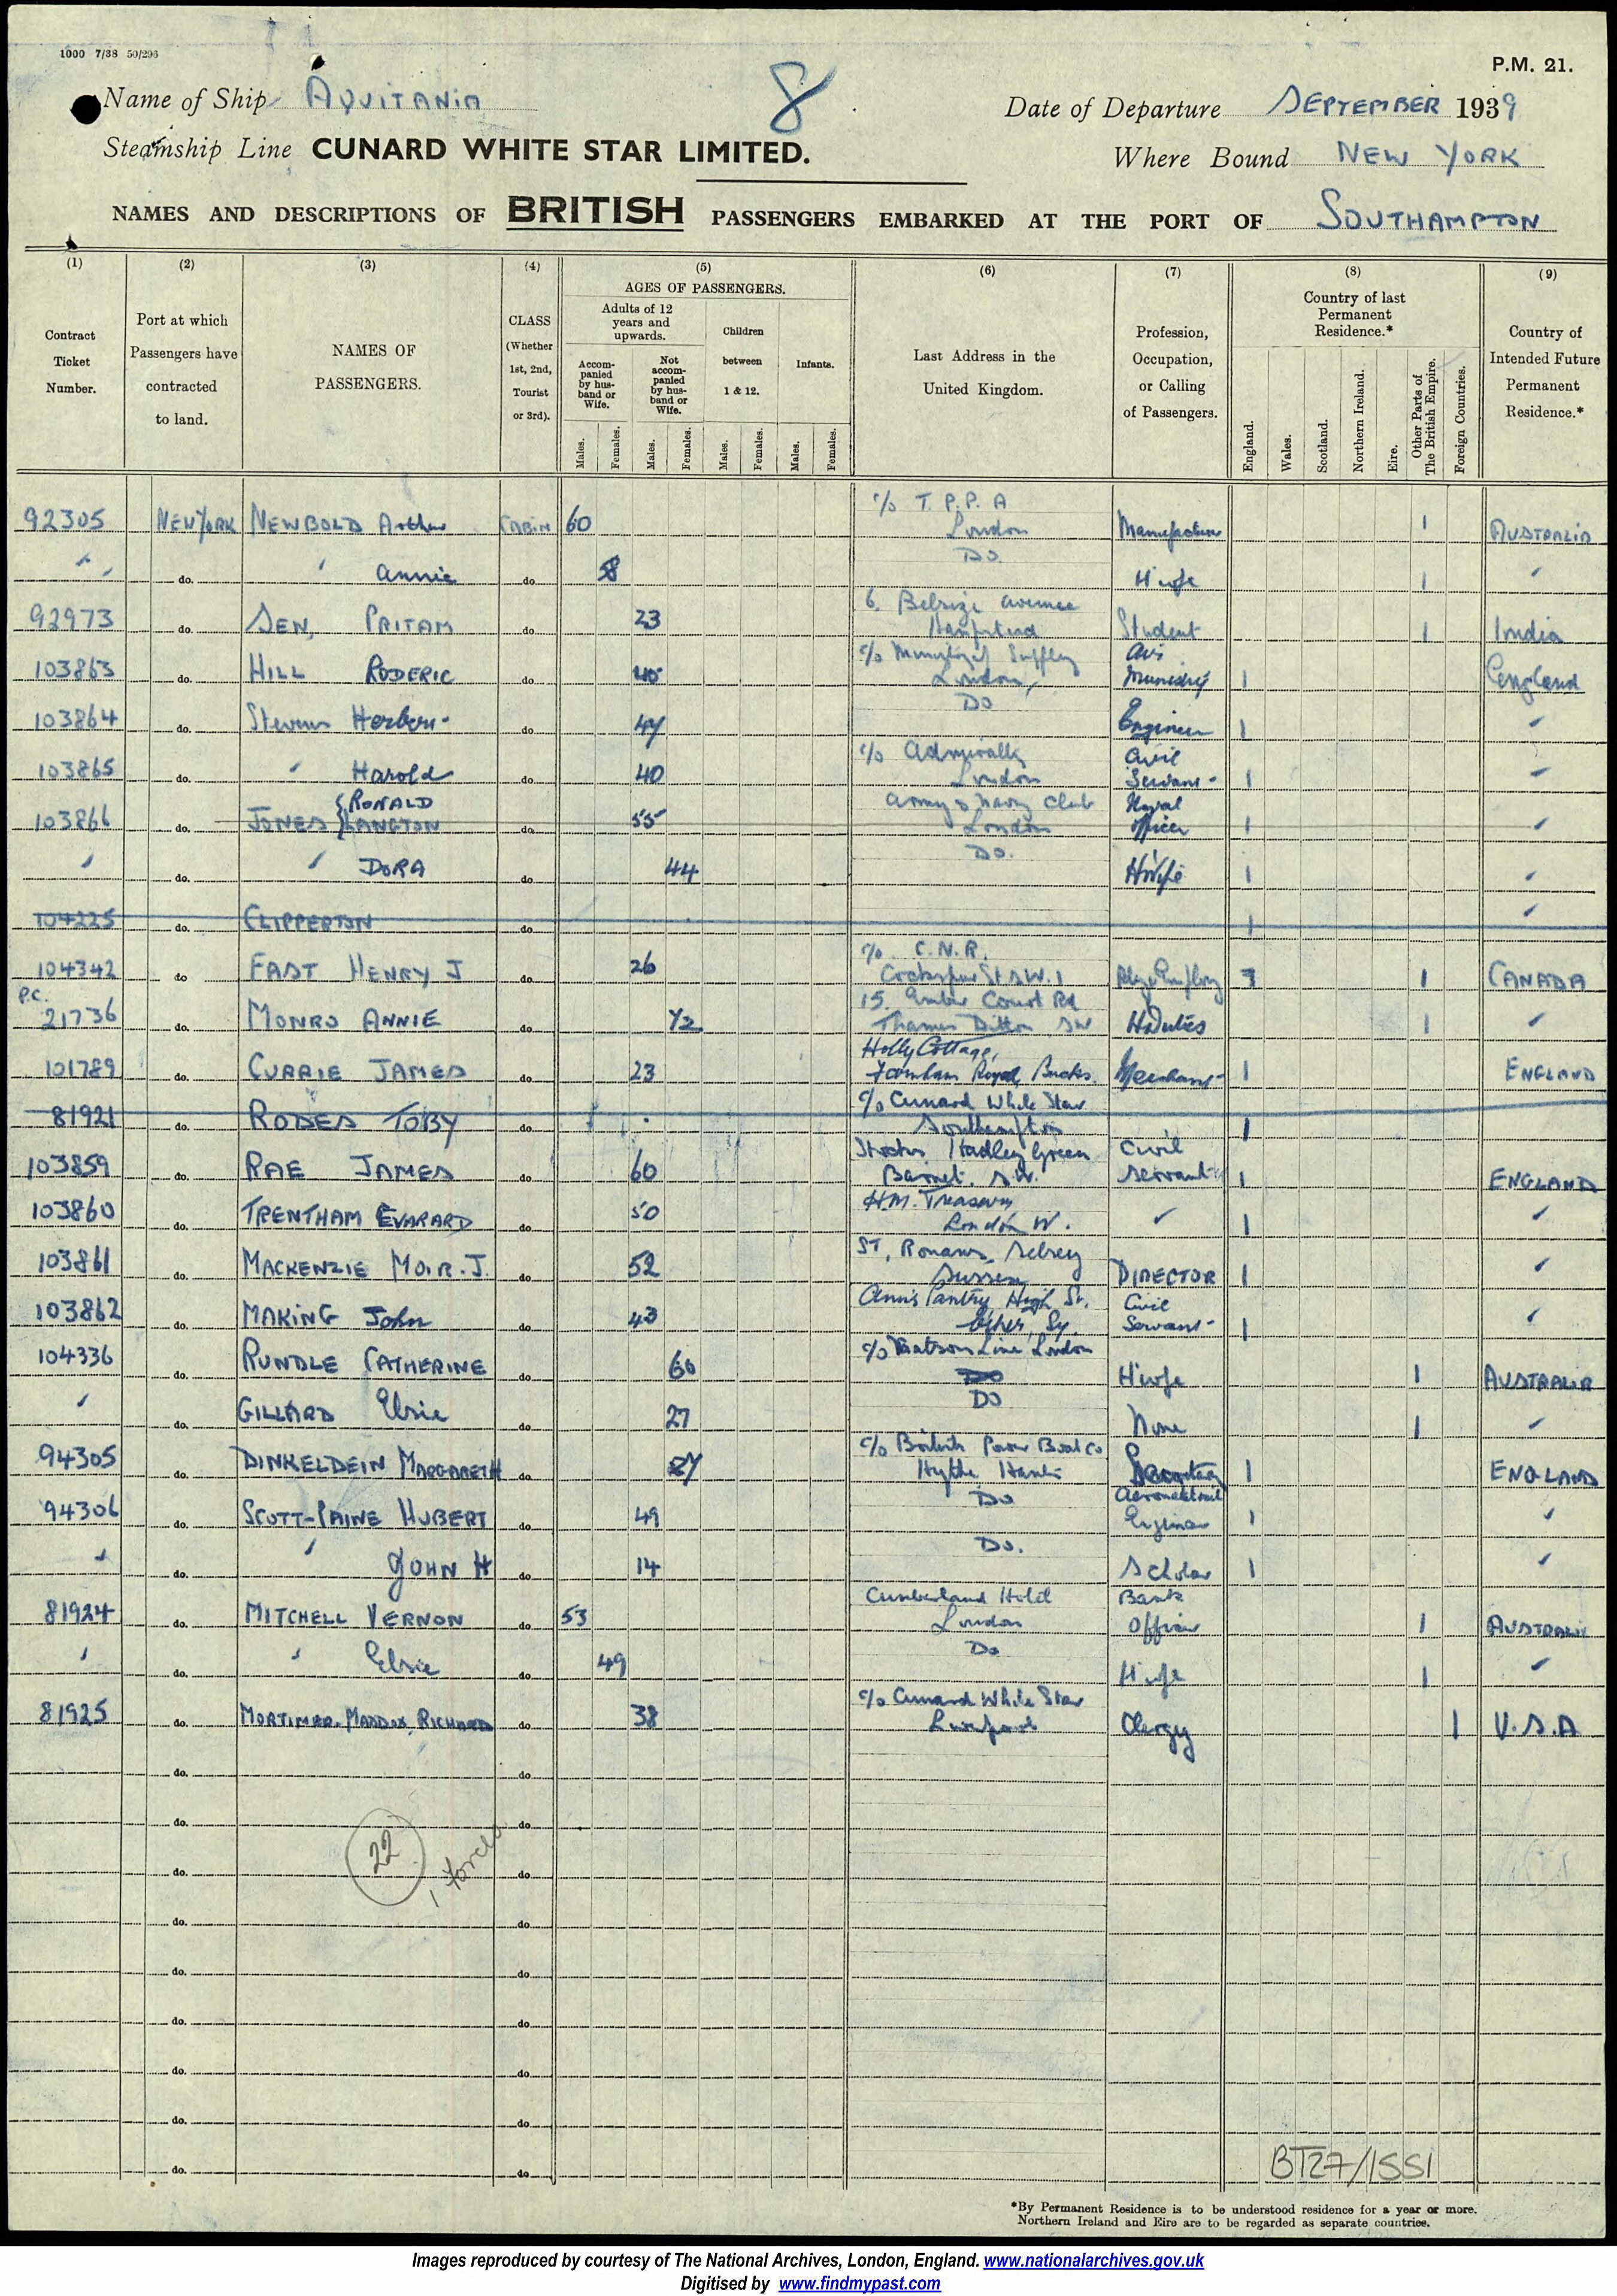 1000 7/38 50/296
P.M. 21.
8
Name of Ship AQUITANIA
Date of Departure SEPTEMBER 1939
Steamship Line CUNARD WHITE STAR LIMITED.
Where Bound NEW YORK
NAMES AND DESCRIPTIONS OF BRITISH PASSENGERS EMBARKED AT THE PORT OF SOUTHAMPTON
(1) (2) (3) (4) (5) (6) (7) (8) (9)
Contract Ticket Number.
Port at which Passengers have contracted to land.
NAMES OF PASSENGERS.
CLASS (Whether 1st, 2nd, Tourist or 3rd).
AGES OF PASSENGERS.
Adults of 12 years and upwards.
Accompanied by husband or Wife.
Not accompanied by husband or Wife.
Children between 1 & 12.
Infants.
Males. Females. Males. Females. Males. Females. Males. Females.
Last Address in the United Kingdom.
Profession, Occupation, or Calling of Passengers.
Country of last Permanent Residence.*
England. Wales. Scotland. Northern Ireland. Eire. Other Parts of The British Empire. Foreign Countries.
Country of Intended Future Permanent Residence.*
92305 NEW YORK NEWBOLD Arthur CABIN 60 c/o T.P.P.A London 1 AUSTRALIA
" do. " Annie do Do. H wife 1 "
92973 do. SEN, PRITAM do 23 6, Belsize Avenue Hampstead Student 1 India
103863 do. HILL RODERIC do c/o Ministry of Supply London, Air Ministry 1 England
103864 do. Stevens do 47 Do Engineer 1 "
103865 do. " Harold do 40 c/o Admiralty London Civil Servant 1 "
103866 do. JONES {RONALD LANGTON do 55 Army & Navy Club London Naval Officer 1 "
" do. " DORA do 44 Do. H Wife 1 "
104225 do. CLIPPERTON do 1 "
104342 do FAST HENRY J do 26 c/o C.N.R. Cockspur St S.W.1 1 CANADA
P.C.
21736 do. MONRO ANNIE do 72 15, Ember Court Rd Thames Ditton H Duties 1 "
101789 do. CURRIE JAMES do 23 Holly Cottage, Farnham Royal Bucks. Merchant 1 ENGLAND
81921 do. RODES TOBY do c/o Cunard White Star Southampton 1
103859 do. RAE JAMES do 60 Hadley Green Barnet. Civil Servant 1 ENGLAND
103860 do. TRENTHAM EVARARD do 50 H.M. Treasury London W. " 1 "
103861 do. MACKENZIE MOIR. J. do 52 ST, Ronans, Selsey Sussex DIRECTOR 1 "
103862 do. MAKING John do 43 Ann's Pantry High St. Esher, Sy. Civil Servant 1 "
104336 do. RUNDLE CATHERINE do 60 c/o Matson Line London Do H wife 1 AUSTRALIA
" do. GILLARD Elsie do 27 Do None 1 "
94305 do. DINKELDEIN MARGARETH do c/o British Power Boat Co Hythe Hants Secretary 1 ENGLAND
94306 do. SCOTT-PAINE HUBERT do 49 Do Aeronautical Engineer 1 "
" do. " JOHN H do 14 Do. Scholar 1 "
81924 do. MITCHELL VERNON do 53 Cumberland Hotel London Bank Officer 1 AUSTRALIA
" do. " Elsie do 49 Do H wife 1 "
81925 do. MORTIMER, MADDOX, RICHARD do 38 c/o Cunard White Star Liverpool Clergy 1 U.S.A
do. do
do. do
22 1
do. do
do. do
do. do
do. do
do. do
do. do
do. do
BT27/1551
*By Permanent Residence is to be understood residence for a year or more.
Northern Ireland and Eire are to be regarded as separate countries.
Images reproduced by courtesy of The National Archives, London, England. www.nationalarchives.gov.uk
Digitised by www.findmypast.com